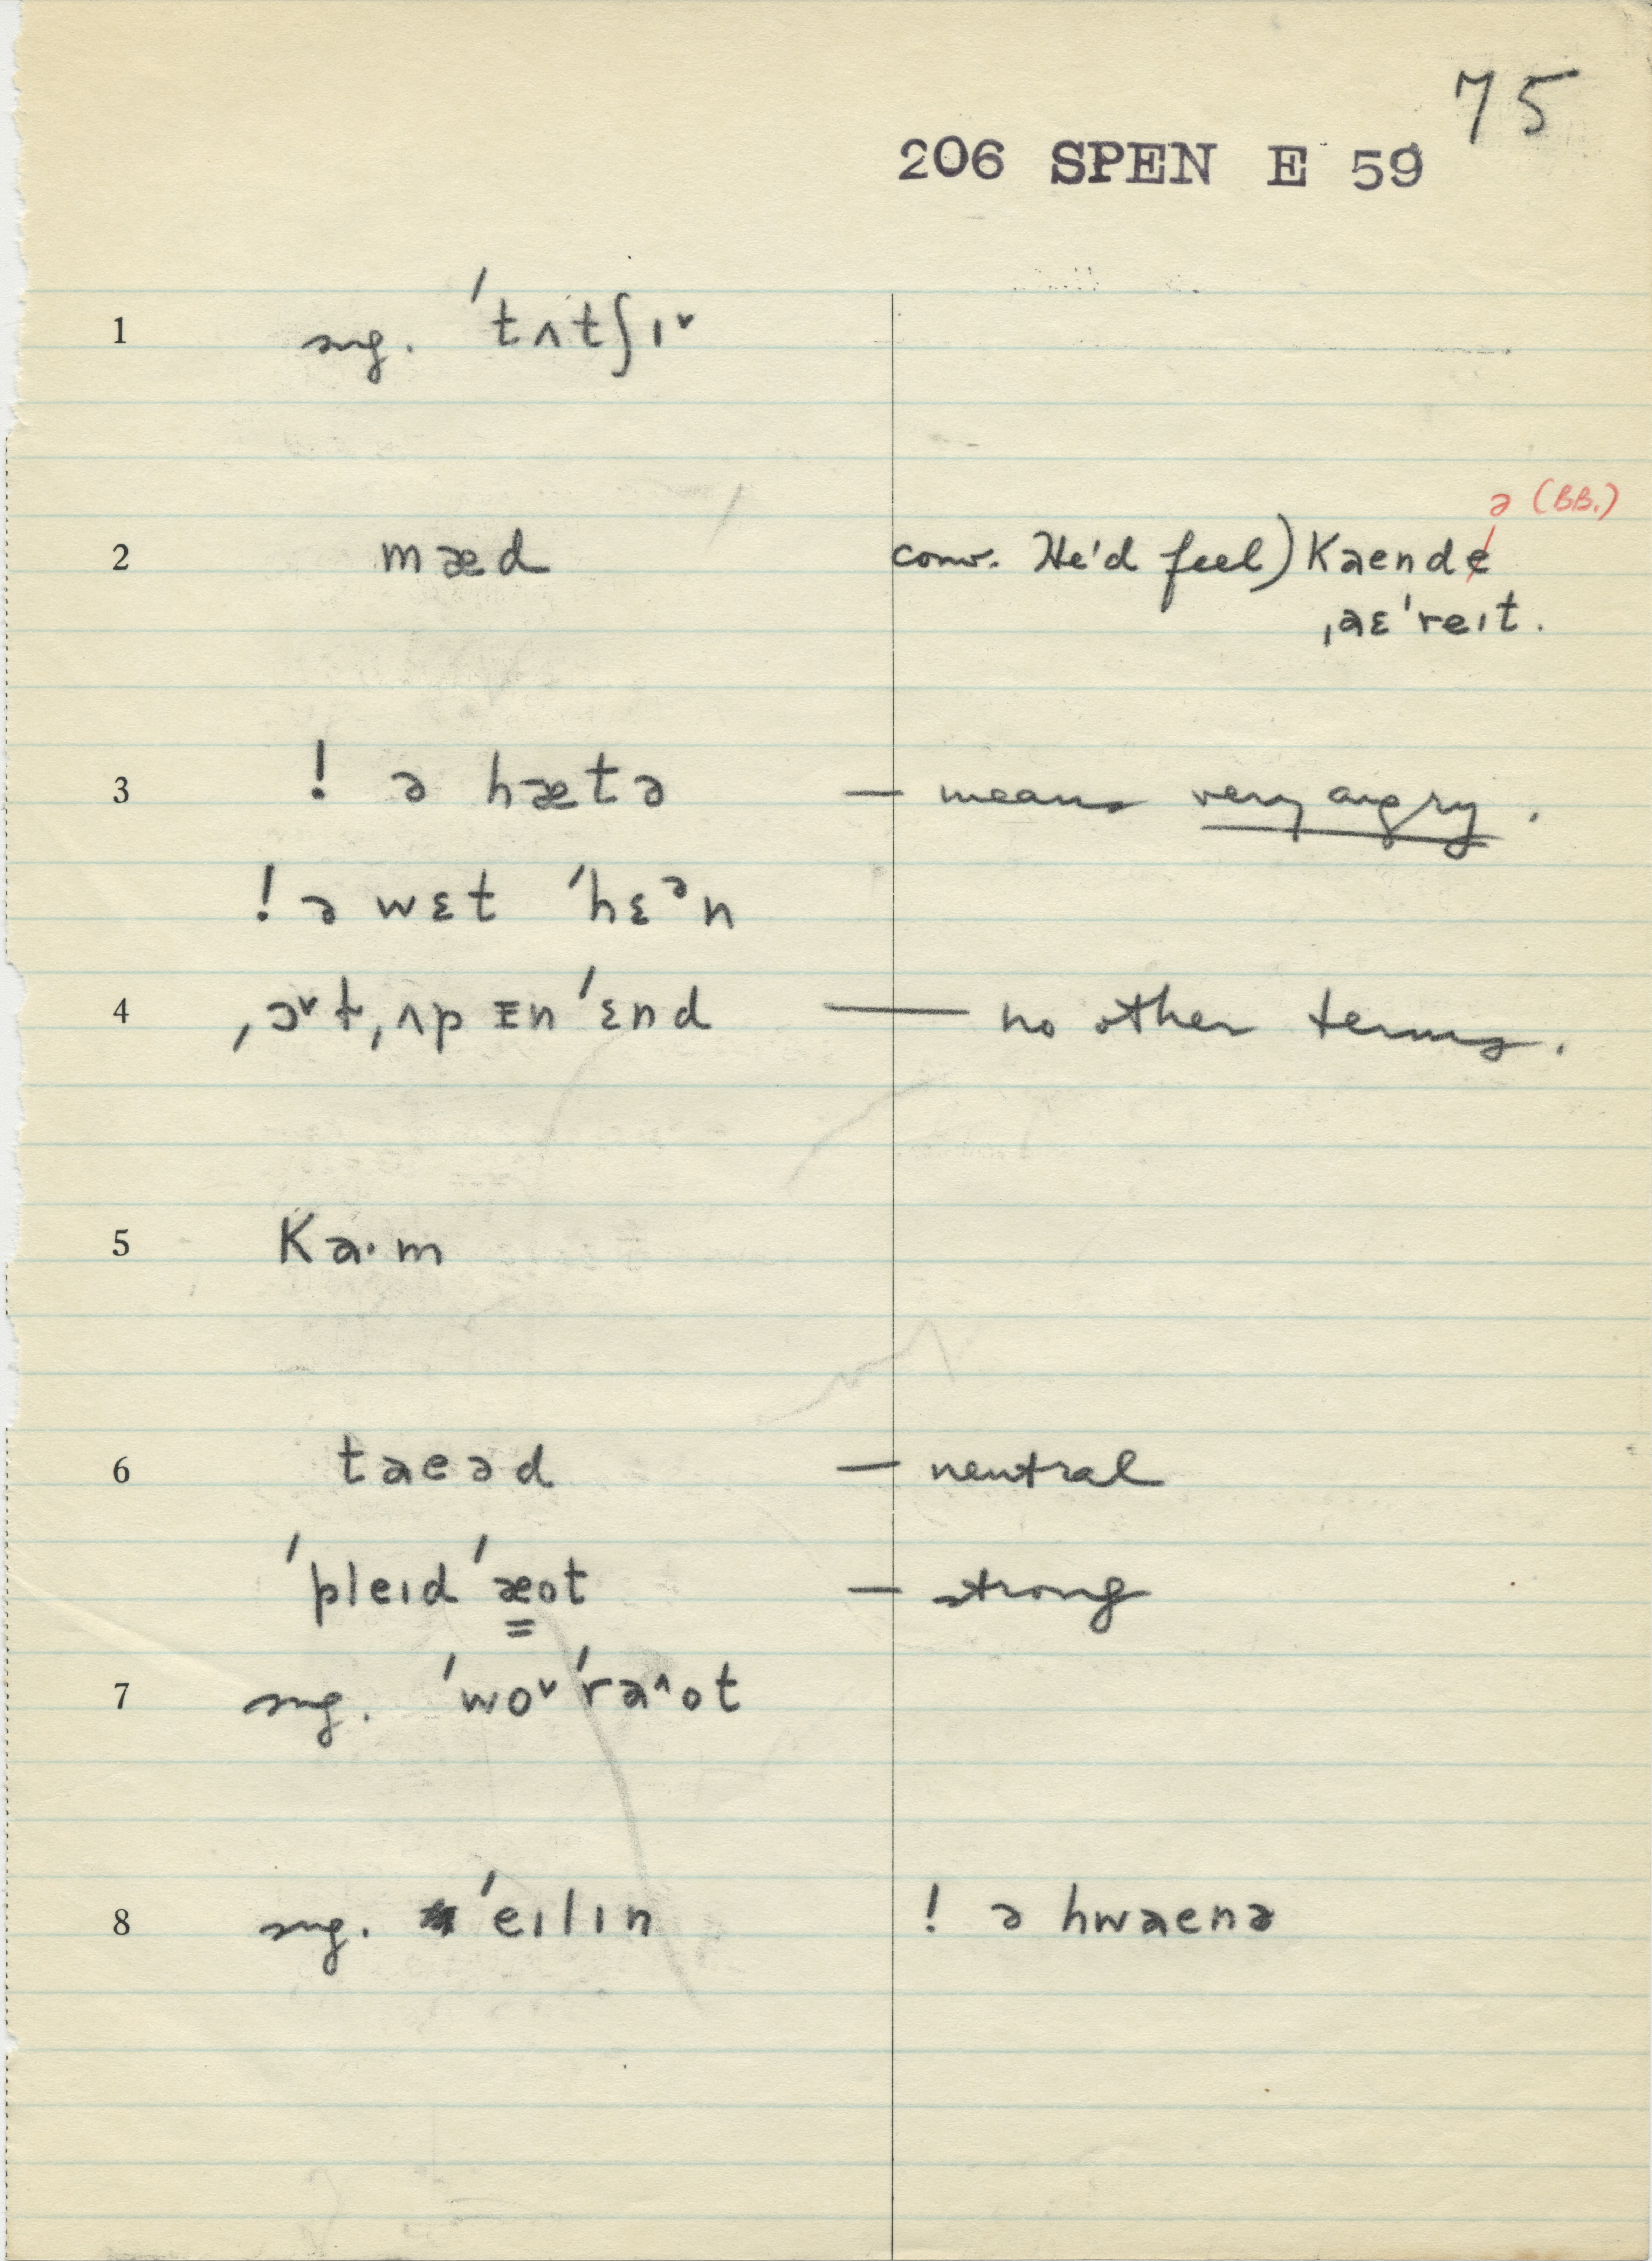 75
206 SPEN E 59
1 sug. ˈtʌtʃɪ˅
ə (BB.)
2 mæd conv. He'd feel) Kaende
ˌaɛˈreɪt.
3 ! ə hætə — means very angry.
! ə wɛt ˈhɛᵊn
4 ˌɔ˅t,ʌp ɪn ˈɛnd — no other terms.
5 Ka·m
6 taeəd — neutral
ˈpleɪd ˈæot — strong
7 sug. ˈwo˅ˈra^ot
8 sug. ˈeɪlɪn ! ə hwaenə